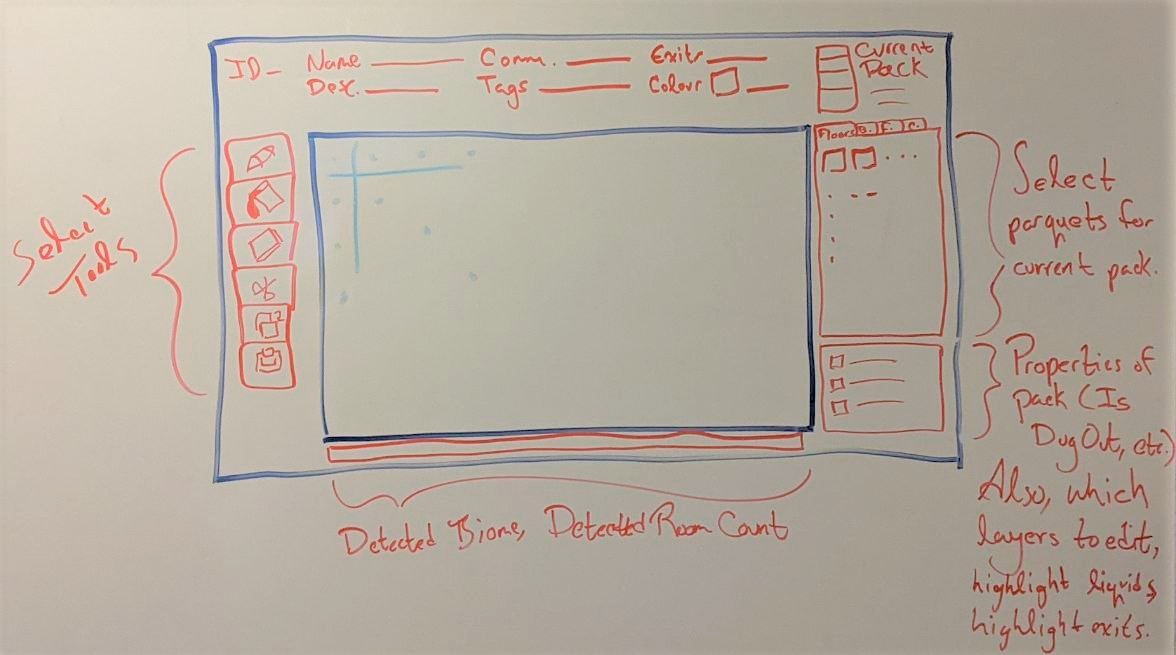 ID Name Comm. Exits Current
Desc. Tags Colour Pack
Floors B. F. C.
2
Select
Tools
Select
parquets for
current pack.
Properties of
pack (Is
Dug Out, etc.)
Also, which
layers to edit,
highlight liquids,
highlight exits.
Detected Biome, Detected Room Count